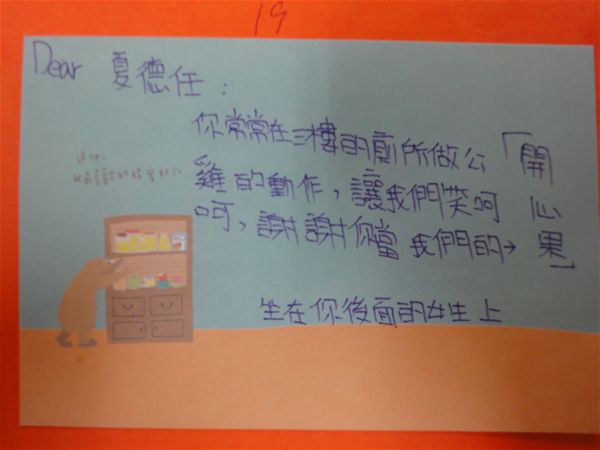 19
Dear 夏德任：
你常常在三樓的廁所做公
雞的動作，讓我們笑呵
呵，謝謝你當我們的→
「開心果」
坐在你後面的女生上